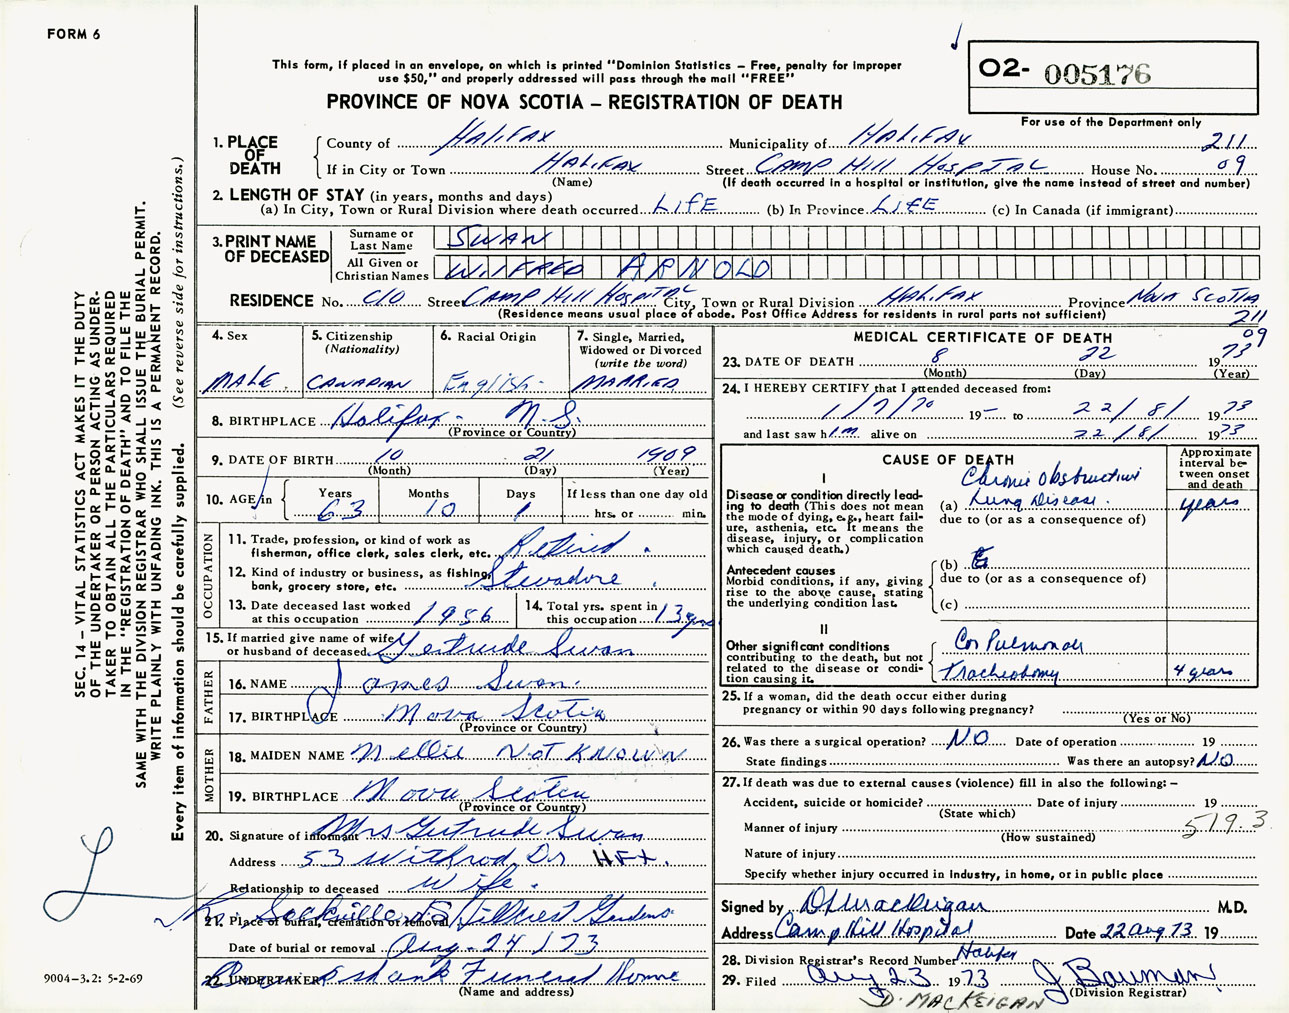 FORM 6
This form, if placed in an envelope, on which is printed "Dominion Statistics – Free, penalty for improper
use $50," and properly addressed will pass through the mail "FREE"
O2- 005176
For use of the Department only
PROVINCE OF NOVA SCOTIA – REGISTRATION OF DEATH
1. PLACE OF DEATH
County of Halifax Municipality of Halifax 211
If in City or Town Halifax Street Camp Hill Hospital House No. 09
(Name) (If death occurred in a hospital or institution, give the name instead of street and number)
2. LENGTH OF STAY (in years, months and days)
(a) In City, Town or Rural Division where death occurred LIFE (b) In Province LIFE (c) In Canada (if immigrant)
3. PRINT NAME OF DECEASED
Surname or Last Name SWAN
All Given or Christian Names WILFRED ARNOLD
RESIDENCE No. C/O Street Camp Hill Hospital City, Town or Rural Division Halifax Province Nova Scotia
(Residence means usual place of abode. Post Office Address for residents in rural parts not sufficient)
211
09
4. Sex
MALE
5. Citizenship
(Nationality)
CANADIAN
6. Racial Origin
English
7. Single, Married,
Widowed or Divorced
(write the word)
MARRIED
8. BIRTHPLACE Halifax N.S.
(Province or Country)
9. DATE OF BIRTH 10 21 1909
(Month) (Day) (Year)
10. AGE in
Years Months Days If less than one day old
63 10 1 hrs. or min.
OCCUPATION
11. Trade, profession, or kind of work as
fisherman, office clerk, sales clerk, etc. Retired.
12. Kind of industry or business, as fishing,
bank, grocery store, etc. Stevadore.
13. Date deceased last worked
at this occupation 1956
14. Total yrs. spent in
this occupation 13 yrs
15. If married give name of wife
or husband of deceased Gertrude Swan
FATHER
16. NAME James Swan.
17. BIRTHPLACE Nova Scotia
(Province or Country)
MOTHER
18. MAIDEN NAME Nellie Not Known
19. BIRTHPLACE Nova Scotia
(Province or Country)
20. Signature of informant Mrs Gertrude Swan
Address 53 Withrod Dr HFX.
Relationship to deceased wife.
21. Place of burial, cremation or removal Sackville N.S. Hillcrest Gardens
Date of burial or removal Aug-24/73
22. UNDERTAKER Cruikshank Funeral Home
(Name and address)
MEDICAL CERTIFICATE OF DEATH
23. DATE OF DEATH 8 22 1973
(Month) (Day) (Year)
24. I HEREBY CERTIFY that I attended deceased from:
1/7/70 19– to 22/8/ 1973
and last saw him alive on 22/8/ 1973
CAUSE OF DEATH
Approximate interval between onset and death
I
Disease or condition directly lead-
ing to death (This does not mean
the mode of dying, e.g., heart fail-
ure, asthenia, etc. It means the
disease, injury, or complication
which caused death.)
Chronic Obstructive
(a) Lung Disease. years
due to (or as a consequence of)
Antecedent causes
Morbid conditions, if any, giving
rise to the above cause, stating
the underlying condition last.
(b)
due to (or as a consequence of)
(c)
II
Other significant conditions
contributing to the death, but not
related to the disease or condi-
tion causing it.
Cor Pulmonale
Tracheotomy 4 years
25. If a woman, did the death occur either during
pregnancy or within 90 days following pregnancy?
(Yes or No)
26. Was there a surgical operation? NO Date of operation 19
State findings Was there an autopsy? NO
27. If death was due to external causes (violence) fill in also the following: –
Accident, suicide or homicide? Date of injury 19
(State which)
Manner of injury 519.3
(How sustained)
Nature of injury
Specify whether injury occurred in industry, in home, or in public place
Signed by D MacKeigan M.D.
Address Camp Hill Hospital Date 22 Aug 73 19
28. Division Registrar's Record Number Halifax
29. Filed Aug 23 1973 J Bauman
(Division Registrar)
D. MACKEIGAN
SEC. 14 – VITAL STATISTICS ACT MAKES IT THE DUTY
OF THE UNDERTAKER OR PERSON ACTING AS UNDER-
TAKER TO OBTAIN ALL THE PARTICULARS REQUIRED
IN THE "REGISTRATION OF DEATH" AND TO FILE THE
SAME WITH THE DIVISION REGISTRAR WHO SHALL ISSUE THE BURIAL PERMIT.
WRITE PLAINLY WITH UNFADING INK. THIS IS A PERMANENT RECORD.
Every item of information should be carefully supplied. (See reverse side for instructions.)
9004-3.2: 5-2-69